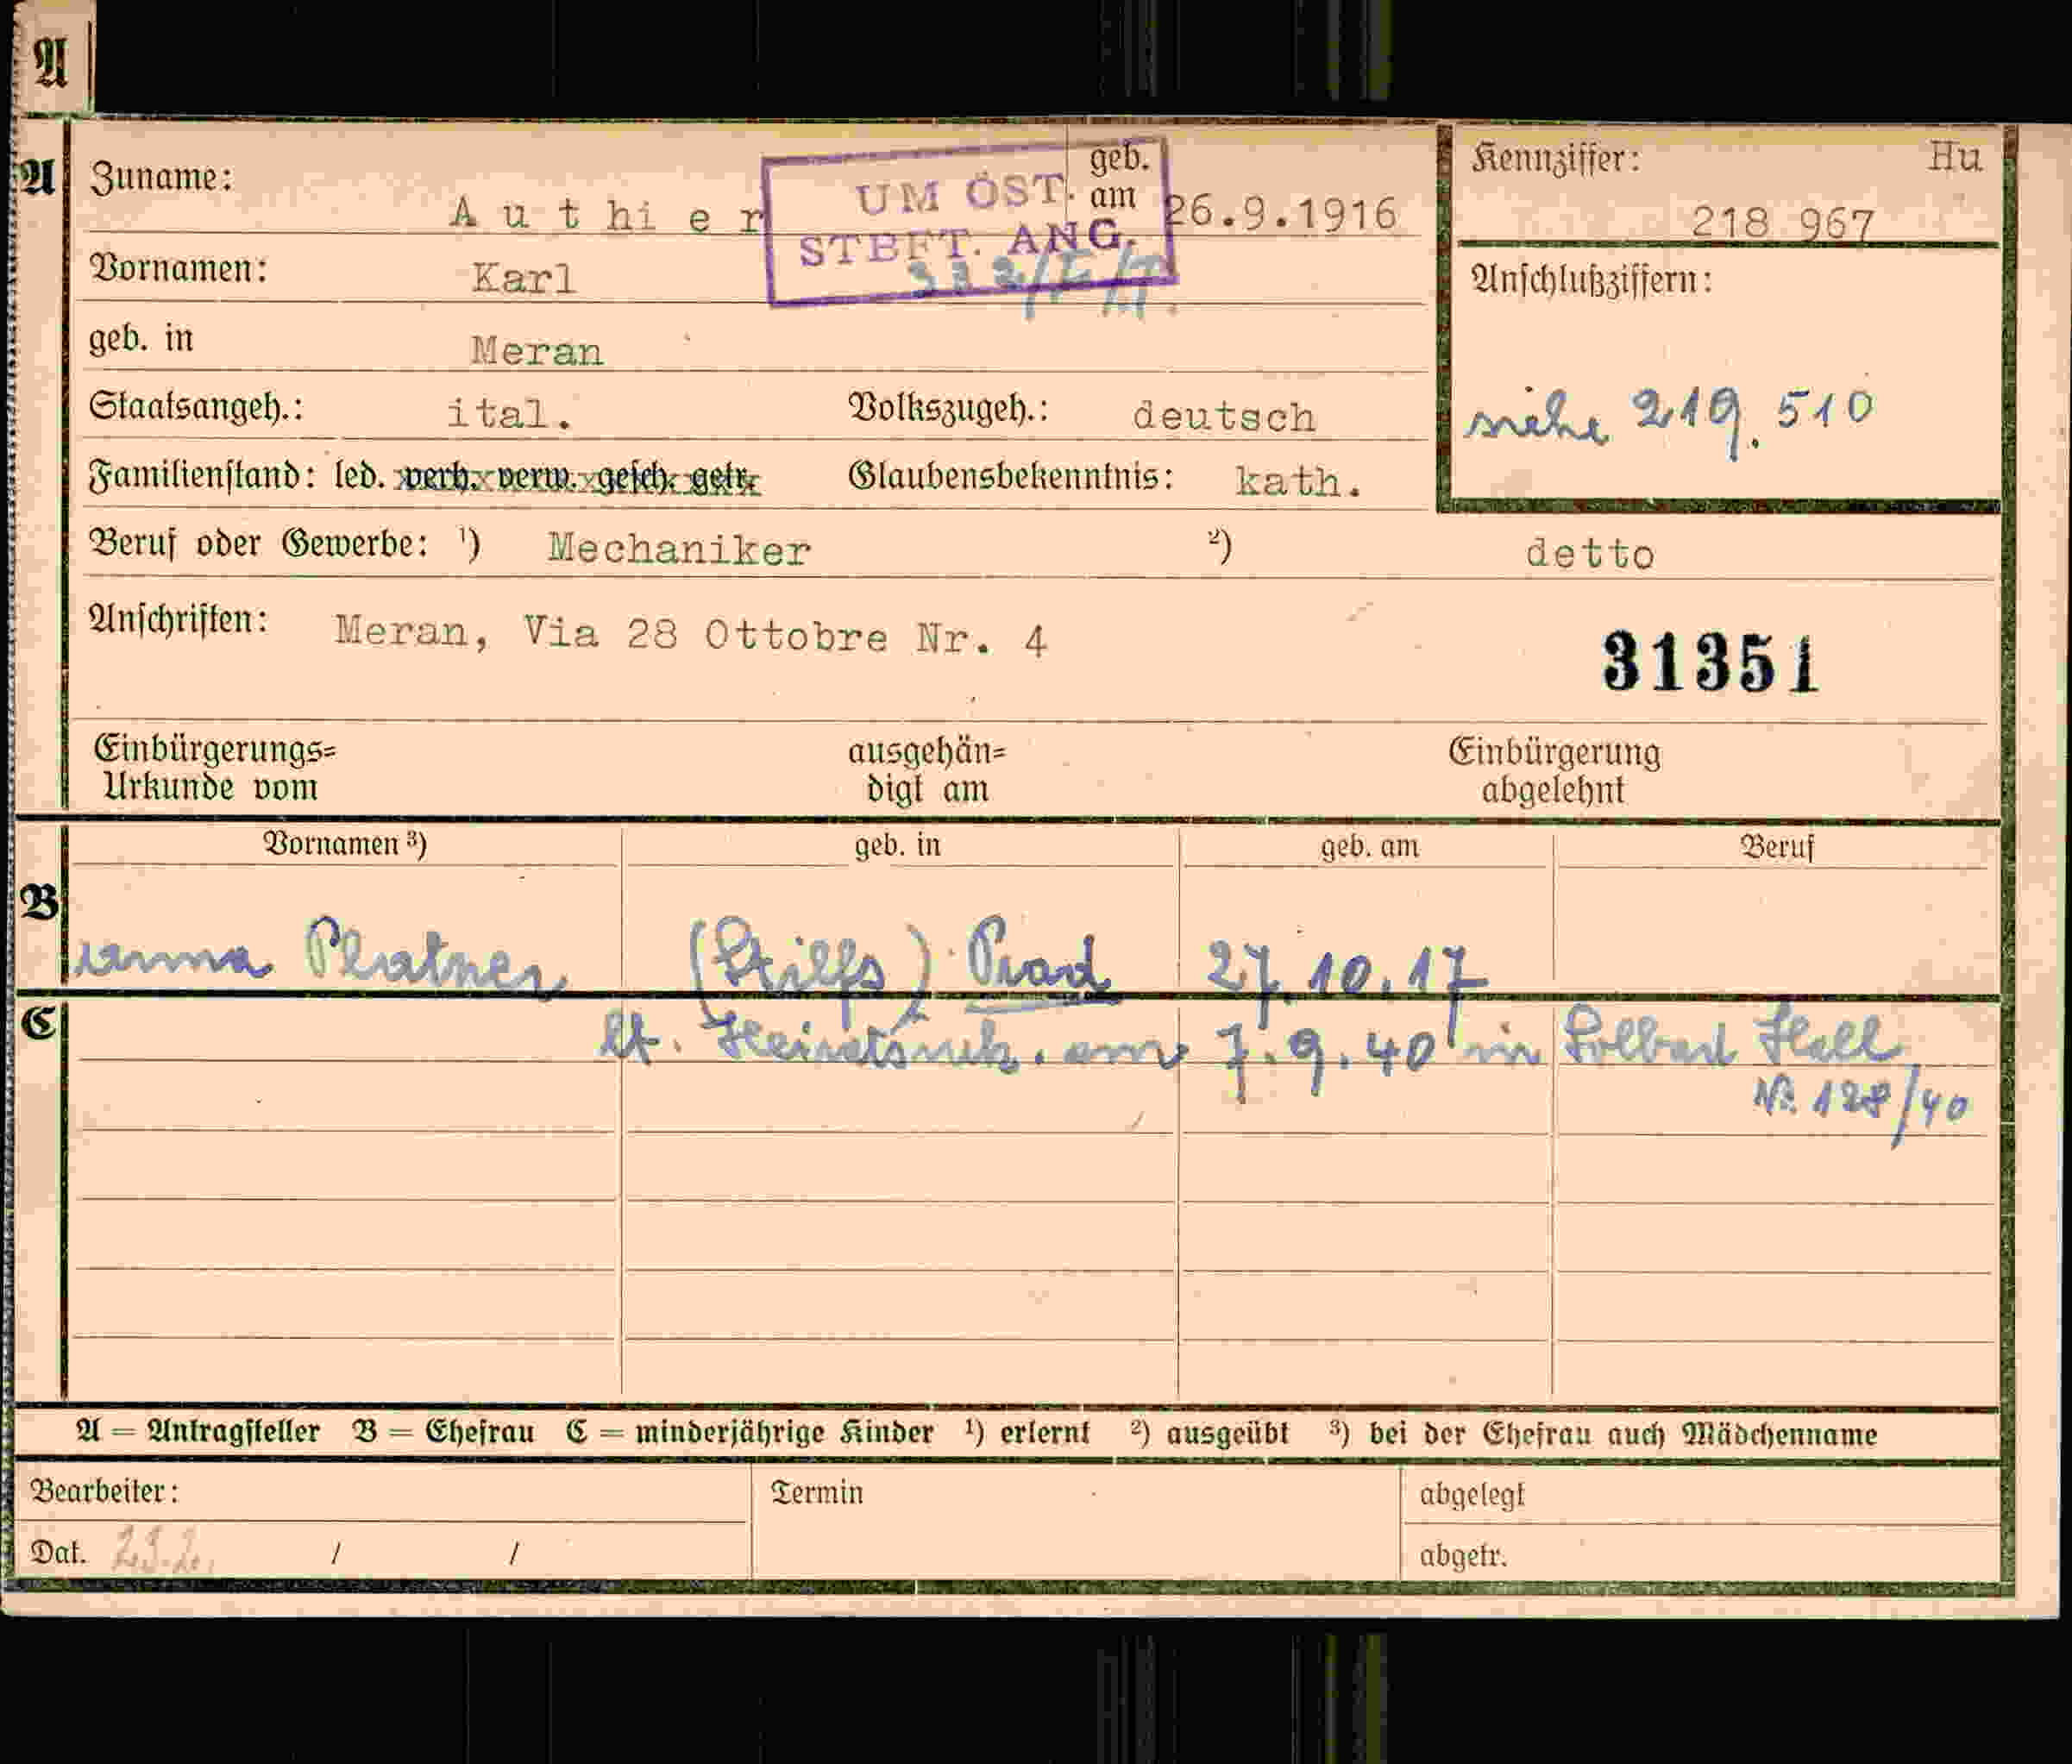 A
A Zuname: Authier geb. am 26.9.1916
UM ÖST.
STBFT. ANG.
Kennziffer: Hu
218 967
Vornamen: Karl
Anschlußziffern:
geb. in Meran
siehe 219.510
Staatsangeh.: ital. Volkszugeh.: deutsch
Familienstand: led. verh. verw. gesch. getr. Glaubensbekenntnis: kath.
Beruf oder Gewerbe: ¹) Mechaniker ²) detto
Anschriften: Meran, Via 28 Ottobre Nr. 4
31351
Einbürgerungs= ausgehän= Einbürgerung
Urkunde vom digt am abgelehnt
Vornamen ³) geb. in geb. am Beruf
B
(Stilfs) Prad 27.10.17
C
lt. am 7.9.40 in Solbad Hall
Nr. 128/40
A = Antragsteller B = Ehefrau C = minderjährige Kinder ¹) erlernt ²) ausgeübt ³) bei der Ehefrau auch Mädchenname
Bearbeiter: Termin abgelegt
Dat. 23.2. / / abgetr.